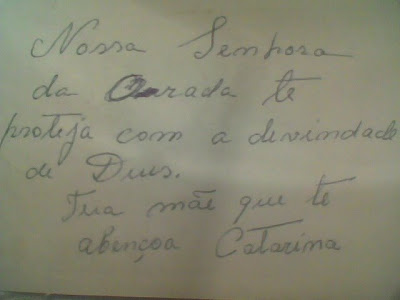 Nossa Senhora
da Orada te
proteja com a devindade
de Deus.
Tua mãe que te
abençoa Catarina